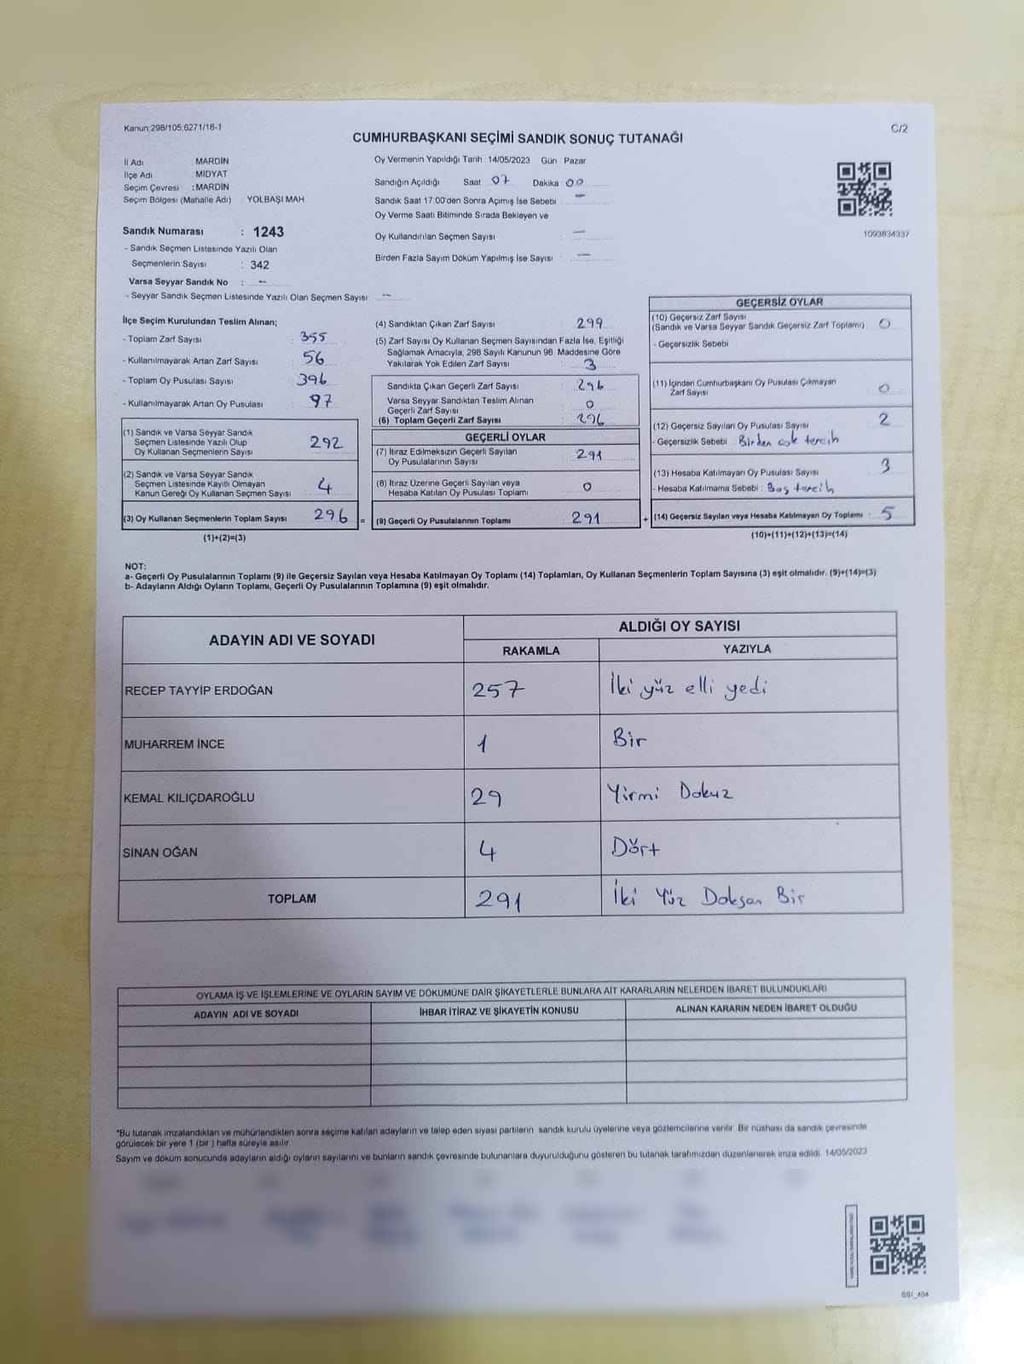 Kanun:298/105;6271/18-1
C/2
CUMHURBAŞKANI SEÇİMİ SANDIK SONUÇ TUTANAĞI
İl Adı : MARDİN
İlçe Adı : MİDYAT
Seçim Çevresi : MARDİN
Seçim Bölgesi (Mahalle Adı) YOLBAŞI MAH
Oy Vermenin Yapıldığı Tarih 14/05/2023 Gün Pazar
Sandığın Açıldığı Saat 07 Dakika 00
Sandık Saat 17:00'den Sonra Açımış İse Sebebi —
Oy Verme Saati Bitiminde Sırada Bekleyen ve
Oy Kullandırılan Seçmen Sayısı —
Birden Fazla Sayım Döküm Yapılmış İse Sayısı —
1093834337
Sandık Numarası : 1243
- Sandık Seçmen Listesinde Yazılı Olan
Seçmenlerin Sayısı : 342
Varsa Seyyar Sandık No : —
- Seyyar Sandık Seçmen Listesinde Yazılı Olan Seçmen Sayısı —
İlçe Seçim Kurulundan Teslim Alınan;
- Toplam Zarf Sayısı 355
- Kullanılmayarak Artan Zarf Sayısı 56
- Toplam Oy Pusulası Sayısı 396
- Kullanılmayarak Artan Oy Pusulası 97
(1) Sandık ve Varsa Seyyar Sandık
Seçmen Listesinde Yazılı Olup
Oy Kullanan Seçmenlerin Sayısı 292
(2) Sandık ve Varsa Seyyar Sandık
Seçmen Listesinde Kayıtlı Olmayan
Kanun Gereği Oy Kullanan Seçmen Sayısı 4
(3) Oy Kullanan Seçmenlerin Toplam Sayısı 296
(1)+(2)=(3)
(4) Sandıktan Çıkan Zarf Sayısı 299
(5) Zarf Sayısı Oy Kullanan Seçmen Sayısından Fazla İse, Eşitliği
Sağlamak Amacıyla, 298 Sayılı Kanunun 98. Maddesine Göre
Yakılarak Yok Edilen Zarf Sayısı : 3
Sandıkta Çıkan Geçerli Zarf Sayısı 296
Varsa Seyyar Sandıktan Teslim Alınan
Geçerli Zarf Sayısı 0
(6) Toplam Geçerli Zarf Sayısı 296
GEÇERLİ OYLAR
(7) İtiraz Edilmeksizin Geçerli Sayılan
Oy Pusulalarının Sayısı 291
(8) İtiraz Üzerine Geçerli Sayılan veya
Hesaba Katılan Oy Pusulası Toplamı 0
= (9) Geçerli Oy Pusulalarının Toplamı 291
GEÇERSİZ OYLAR
(10) Geçersiz Zarf Sayısı
(Sandık ve Varsa Seyyar Sandık Geçersiz Zarf Toplamı) 0
- Geçersizlik Sebebi
(11) İçinden Cumhurbaşkanı Oy Pusulası Çıkmayan
Zarf Sayısı 0
(12) Geçersiz Sayılan Oy Pusulası Sayısı 2
- Geçersizlik Sebebi Birden çok tercih
(13) Hesaba Katılmayan Oy Pusulası Sayısı 3
- Hesaba Katılmama Sebebi : Boş tercih
+ (14) Geçersiz Sayılan veya Hesaba Katılmayan Oy Toplamı : 5
(10)+(11)+(12)+(13)=(14)
NOT:
a- Geçerli Oy Pusulalarının Toplamı (9) ile Geçersiz Sayılan veya Hesaba Katılmayan Oy Toplamı (14) Toplamları, Oy Kullanan Seçmenlerin Toplam Sayısına (3) eşit olmalıdır. (9)+(14)=(3)
b- Adayların Aldığı Oyların Toplamı, Geçerli Oy Pusulalarının Toplamına (9) eşit olmalıdır.
ADAYIN ADI VE SOYADI
ALDIĞI OY SAYISI
RAKAMLA YAZIYLA
RECEP TAYYİP ERDOĞAN 257 İki yüz elli yedi
MUHARREM İNCE 1 Bir
KEMAL KILIÇDAROĞLU 29 Yirmi Dokuz
SİNAN OĞAN 4 Dört
TOPLAM 291 İki Yüz Doksan Bir
OYLAMA İŞ VE İŞLEMLERİNE VE OYLARIN SAYIM VE DÖKÜMÜNE DAİR ŞİKAYETLERLE BUNLARA AİT KARARLARIN NELERDEN İBARET BULUNDUKLARI
ADAYIN ADI VE SOYADI İHBAR İTİRAZ VE ŞİKAYETİN KONUSU ALINAN KARARIN NEDEN İBARET OLDUĞU
*Bu tutanak imzalandıktan ve mühürlendikten sonra seçime katılan adayların ve talep eden siyasi partilerin sandık kurulu üyelerine veya gözlemcilerine verilir. Bir nüshası da sandık çevresinde
görülecek bir yere 1 (bir) hafta süreyle asılır.
Sayım ve döküm sonucunda adayların aldığı oyların sayılarını ve bunların sandık çevresinde bulunanlara duyurulduğunu gösteren bu tutanak tarafımızdan düzenlenerek imza edildi. 14/05/2023